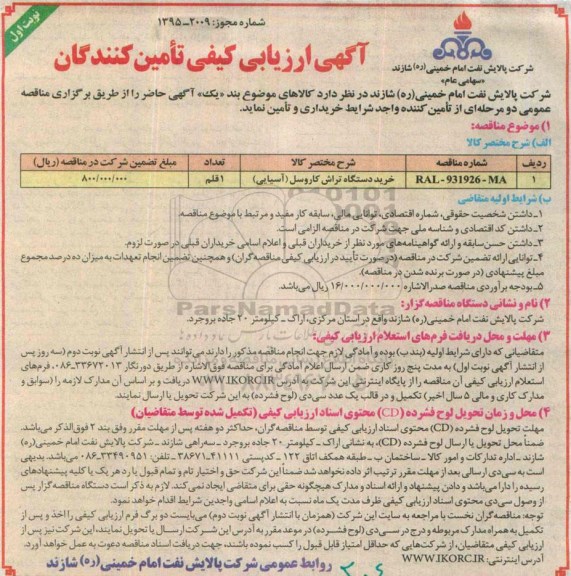 نوبت اول
شماره مجوز: ۲۰۰۹-۱۳۹۵
آگهی ارزیابی کیفی تأمین کنندگان
شرکت پالایش نفت امام خمینی(ره) شازند
«سهامی عام»
شرکت پالایش نفت امام خمینی(ره) شازند در نظر دارد کالاهای موضوع بند «یک» آگهی حاضر را از طریق برگزاری مناقصه
عمومی دو مرحله‌ای از تأمین کننده واجد شرایط خریداری و تأمین نماید.
۱) موضوع مناقصه:
الف) شرح مختصر کالا
ردیف شماره مناقصه شرح مختصر کالا تعداد مبلغ تضمین شرکت در مناقصه (ریال)
۱ RAL-931926-MA خرید دستگاه تراش کاروسل (آسیایی) ۱ قلم ۸۰۰/۰۰۰/۰۰۰
ب) شرایط اولیه متقاضی
۱ـ داشتن شخصیت حقوقی، شماره اقتصادی، توانایی مالی، سابقه کار مفید و مرتبط با موضوع مناقصه.
۲ـ داشتن کد اقتصادی و شناسه ملی جهت شرکت در مناقصه الزامی است.
۳ـ داشتن حسن سابقه و ارائه گواهینامه‌های مورد نظر از خریداران قبلی و اعلام اسامی خریداران قبلی در صورت لزوم.
۴ـ توانایی ارائه تضمین شرکت در مناقصه (در صورت تأیید در ارزیابی کیفی مناقصه گران) و همچنین تضمین انجام تعهدات به میزان ده درصد مجموع
مبلغ پیشنهادی (در صورت برنده شدن در مناقصه).
۵ـ بودجه برآوردی مناقصه صدرالاشاره ۱۶/۰۰۰/۰۰۰/۰۰۰ ریال می‌باشد.
ParsNamadData
۲) نام و نشانی دستگاه مناقصه‌گزار:
شرکت پالایش نفت امام خمینی(ره) شازند واقع در استان مرکزی، اراک ـ کیلومتر ۲۰ جاده بروجرد.
۳) مهلت و محل دریافت فرم‌های استعلام ارزیابی کیفی:
متقاضیانی که دارای شرایط اولیه (بند ب) بوده و آمادگی لازم جهت انجام مناقصه مذکور را دارند می‌توانند پس از انتشار آگهی نوبت دوم (سه روز پس
از انتشار آگهی نوبت اول) به مدت پنج روز کاری ضمن ارسال اعلام آمادگی برای مناقصه فوق‌الاشاره از طریق دورنگار ۳۳۶۷۲۰۱۳-۰۸۶ فرم‌های
استعلام ارزیابی کیفی آن مناقصه را از پایگاه اینترنتی این شرکت به آدرس WWW.IKORC.IR دریافت و بر اساس آن مدارک لازمه را (سوابق و
مدارک کاری و مالی ۵ سال اخیر) تکمیل و در قالب یک عدد سی‌دی به کمیسیون مناقصات (دفتر کمیسیون) این شرکت تحویل یا ارسال نمایند.
۴) محل و زمان تحویل لوح فشرده (CD) محتوی اسناد ارزیابی کیفی (تکمیل شده توسط متقاضیان)
مهلت تحویل لوح فشرده (CD) محتوی اسناد ارزیابی کیفی توسط مناقصه‌گران، حداکثر دو هفته پس از مهلت مقرر وفق بند ۲ فوق‌الذکر می‌باشد.
ضمناً محل تحویل یا ارسال لوح فشرده (CD)، به نشانی اراک ـ کیلومتر ۲۰ جاده بروجرد ـ سه‌راهی شازند ـ شرکت پالایش نفت امام خمینی(ره)
شازند ـ اداره تدارکات و امور کالا ـ ساختمان ب ـ طبقه همکف اتاق ۱۲۲ ـ کدپستی ۴۱۱۱۱-۳۸۶۷۱ ـ تلفن: ۳۳۴۹۰۹۵۱-۰۸۶ می‌باشد. بدیهی
است به سی‌دی ارسالی بعد از مهلت مقرر ترتیب اثر داده نخواهد شد ضمناً این شرکت حق و اختیار تام و تمام قبول یا رد هر یک یا کلیه پیشنهادهای
رسیده را دارا می‌باشد و دادن پیشنهاد و ارائه اسناد و مدارک هیچگونه حقی برای متقاضی ایجاد نمی‌کند. لازم به ذکر است دستگاه مناقصه گزار پس
از وصول سی‌دی محتوی اسناد ارزیابی کیفی ظرف مدت یک ماه نسبت به اعلام اسامی واجدین شرایط اقدام خواهد نمود.
توجه: مناقصه‌گران نخست با مراجعه به سایت این شرکت (همزمان با انتشار آگهی نوبت دوم) می‌بایست دو برگ فرم ارزیابی کیفی را اخذ و پس از
تکمیل به همراه مدارک مربوطه و درج در سی‌دی (لوح فشرده) در موعد مقرر به آدرس این شرکت ارسال یا تحویل نمایند، این شرکت نیز پس از
ارزیابی کیفی متقاضیان، از شرکت‌هایی که حداقل امتیاز قابل قبول را کسب نموده باشند، جهت دریافت اسناد مناقصه دعوت به عمل خواهد آورد.
آدرس اینترنتی: WWW.IKORC.IR
روابط عمومی شرکت پالایش نفت امام خمینی(ره) شازند